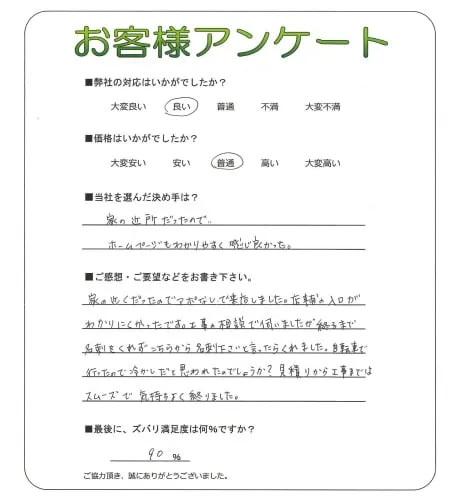 お客様アンケート
■弊社の対応はいかがでしたか？
大変良い 良い 普通 不満 大変不満
■価格はいかがでしたか？
大変安い 安い 普通 高い 大変高い
■当社を選んだ決め手は？
家の近所だったので..
ホームページもわかりやすく感じ良かった。
■ご感想・ご要望などをお書き下さい。
家の近くだったのでアポなしで来店しました。店舗の入口が
わかりにくかったです。工事の相談で伺いましたが終るまで
名刺をくれずこちらから名刺下さいと言ったらくれました。自転車で
行ったので冷かしだと思われたのでしょうか？見積りから工事までは
スムーズで気持ちよく終りました。
■最後に、ズバリ満足度は何%ですか？
90 %
ご協力頂き、誠にありがとうございました。